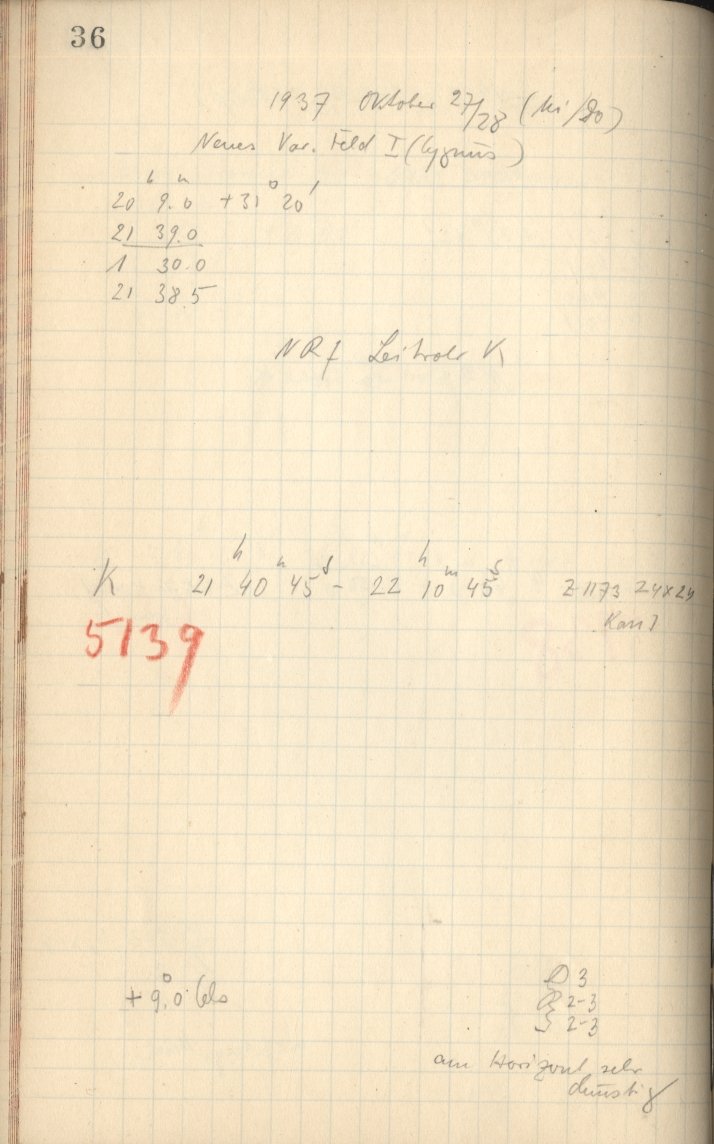 36
1937 Oktober 27/28 (Mi/Do)
Neues Var. Feld I (Cygnus)
20 h 9.0 m +31° 20'
21 39.0
1 30.0
21 38.5
NRf Leitrohr K
K 21 h 40 m 45 s - 22 h 10 m 45 s Z 1173 24x24
5139
+ 9.°0 Cels
D 3
R 2-3
J 2-3
am Horizont sehr
dunstig